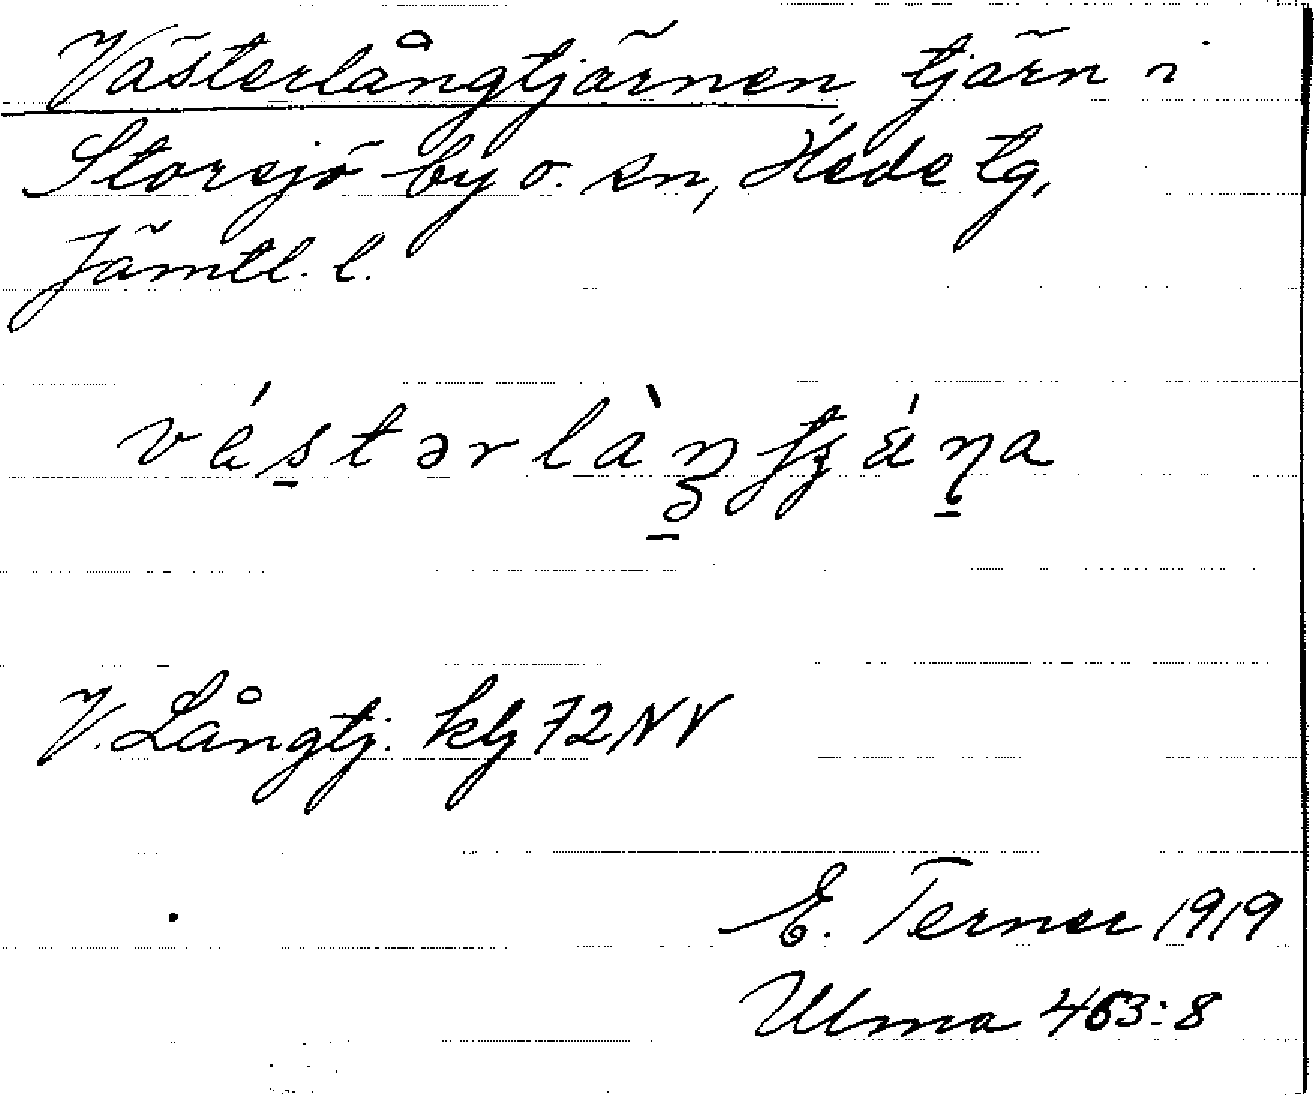 Västerlångtjärnen tjärn i
Storsjö by o. sn, Hede tg,
Jämtl. l.
V. Långtj. kbl 72 NV
E. Terner 1919
Ulma 463:8